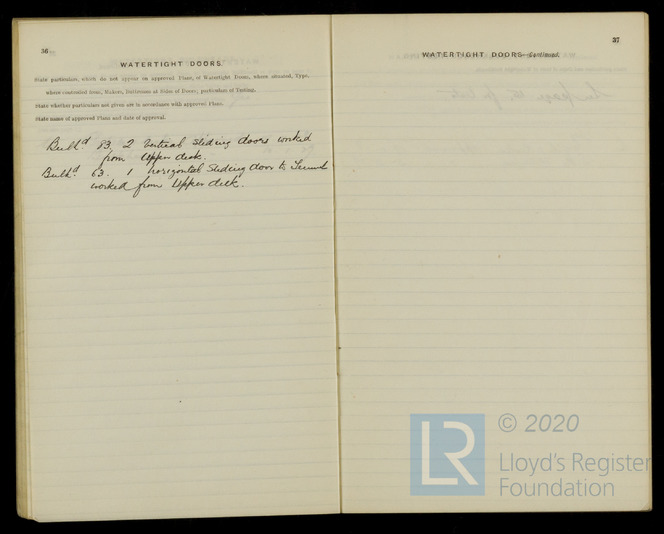 36
WATERTIGHT DOORS.
State particulars, which do not appear on approved Plans, of Watertight Doors, where situated, Type,
where controlled from, Makers, Thicknesses at Sides of Doors; particulars of Testing.
State whether particulars not given are in accordance with approved Plans.
State name of approved Plans and date of approval.
Bulkd 83. 2 Vertical sliding doors worked
from Upper deck.
Bulkd. 63. 1 horizontal Sliding door to Tunnel
worked from Upper deck.
37
WATERTIGHT DOORS—Continued.
LR
© 2020
Lloyd's Register
Foundation